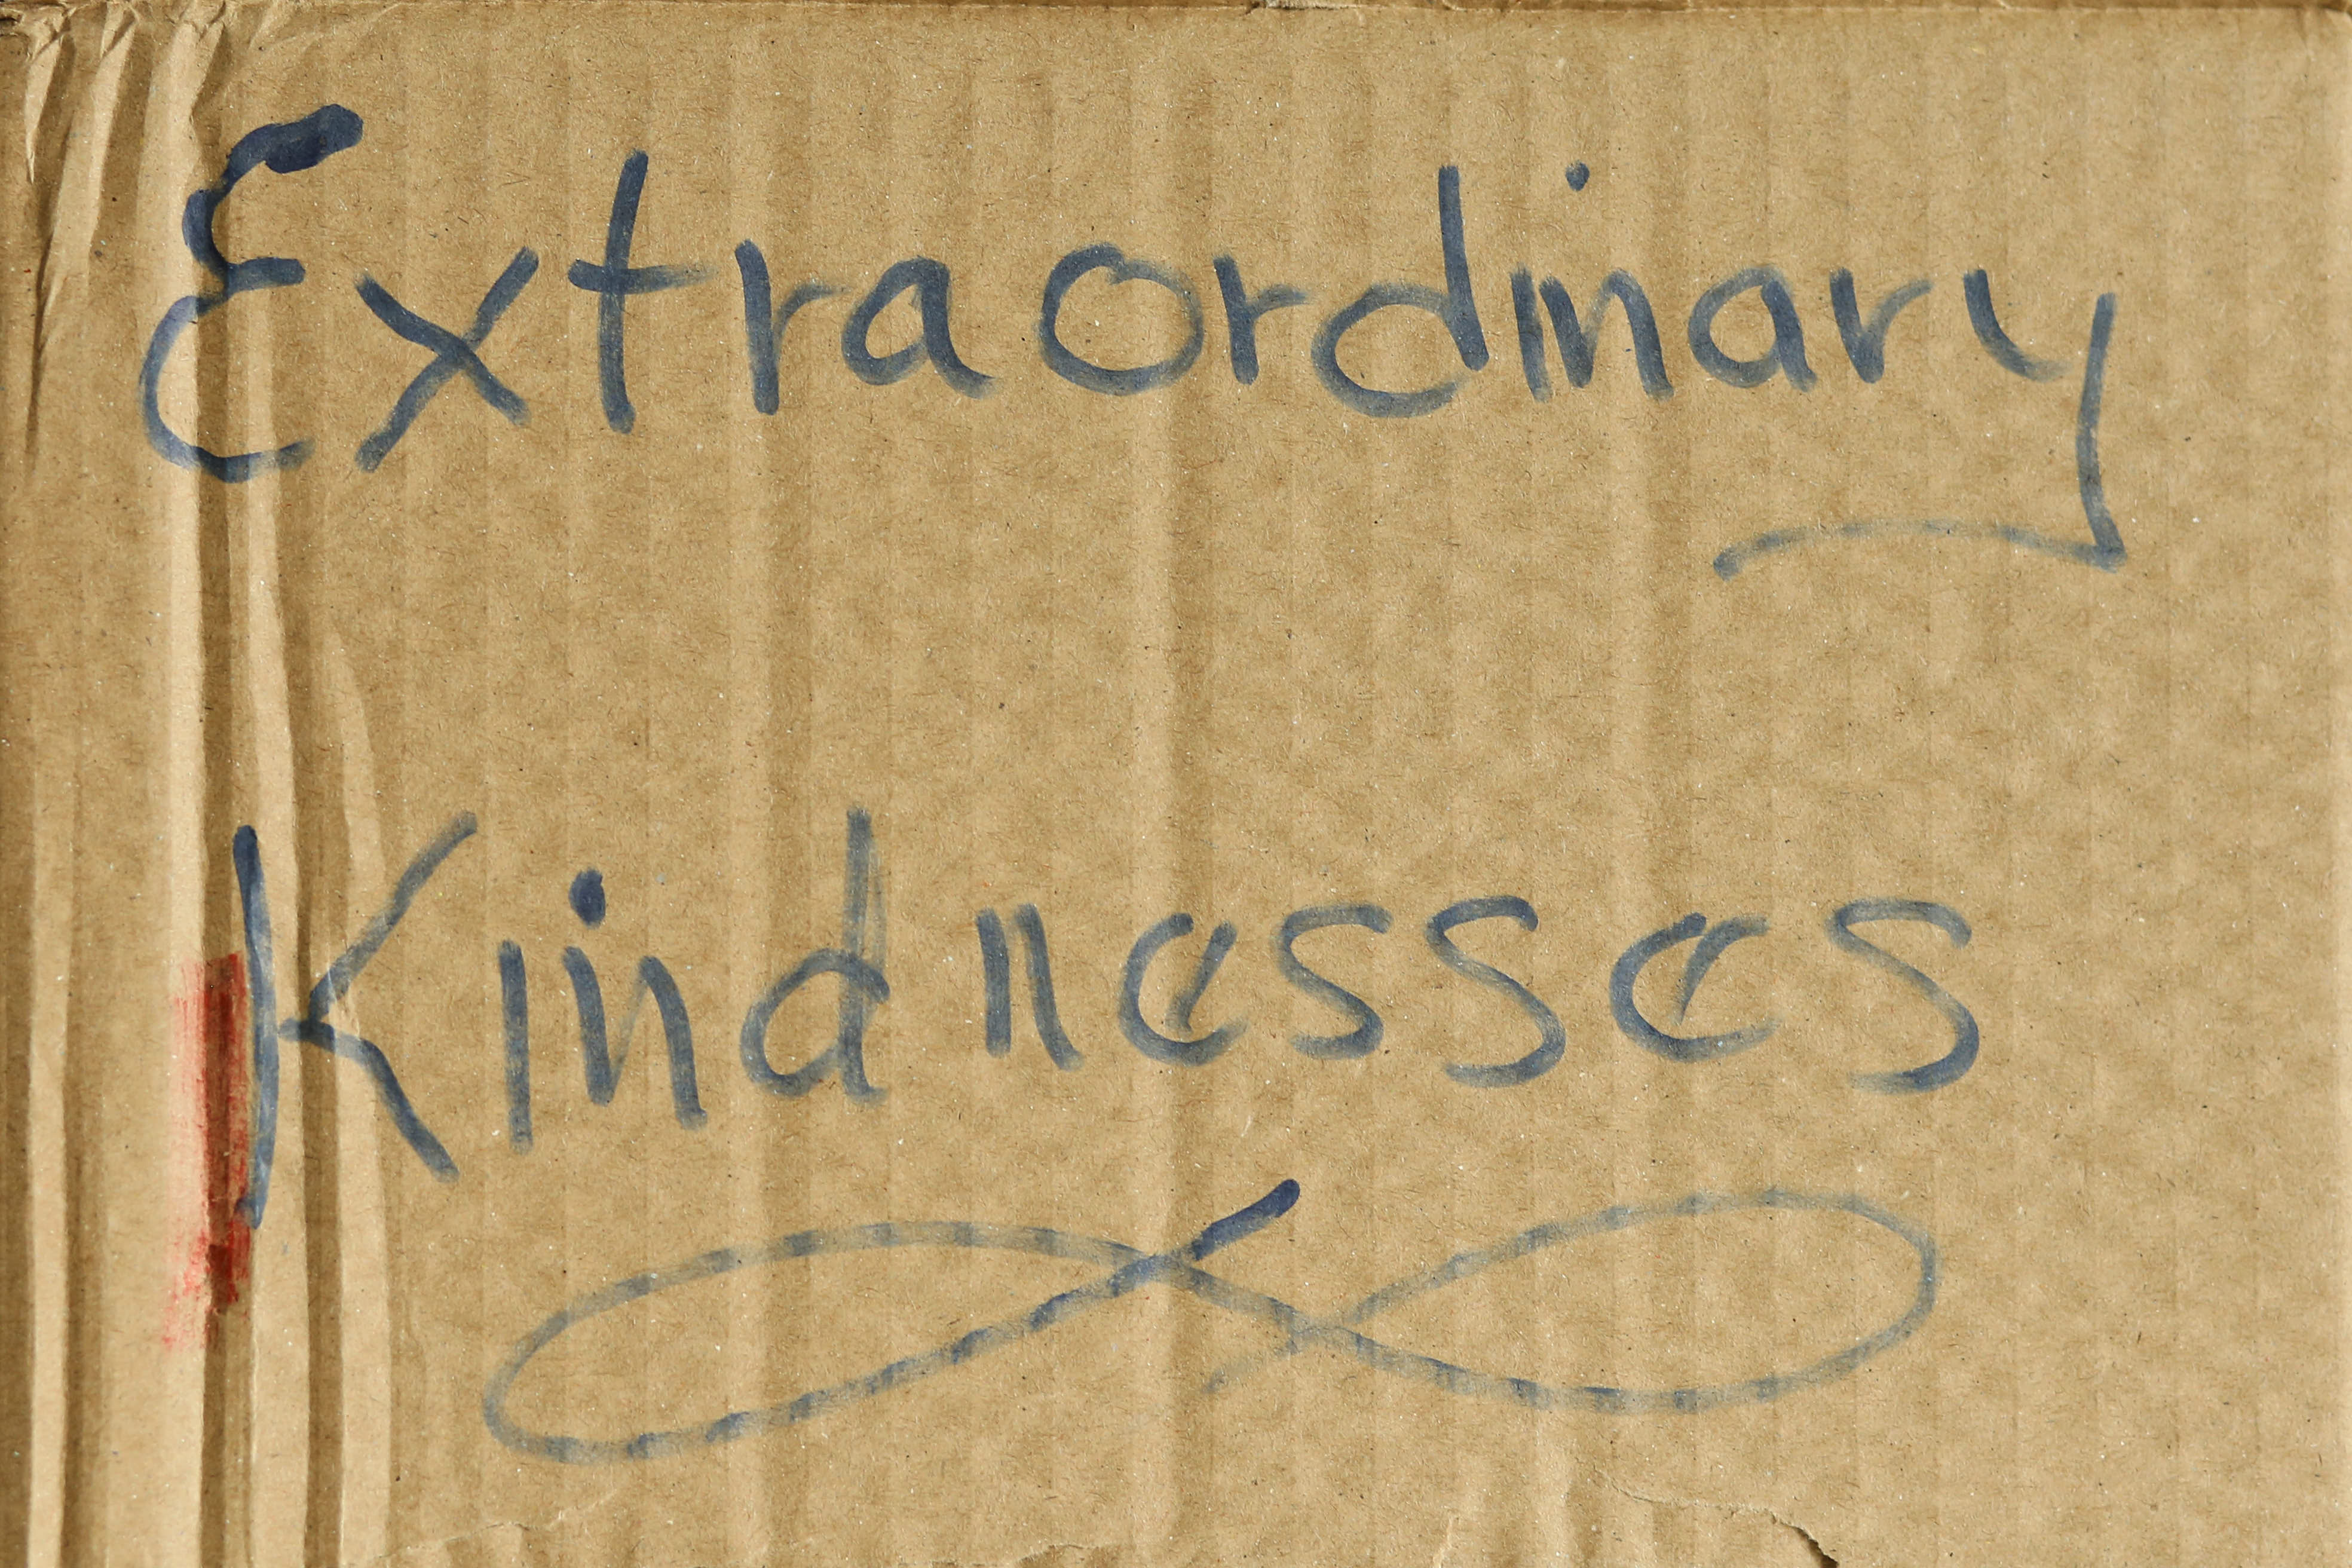 Extraordinary
Kindnesses